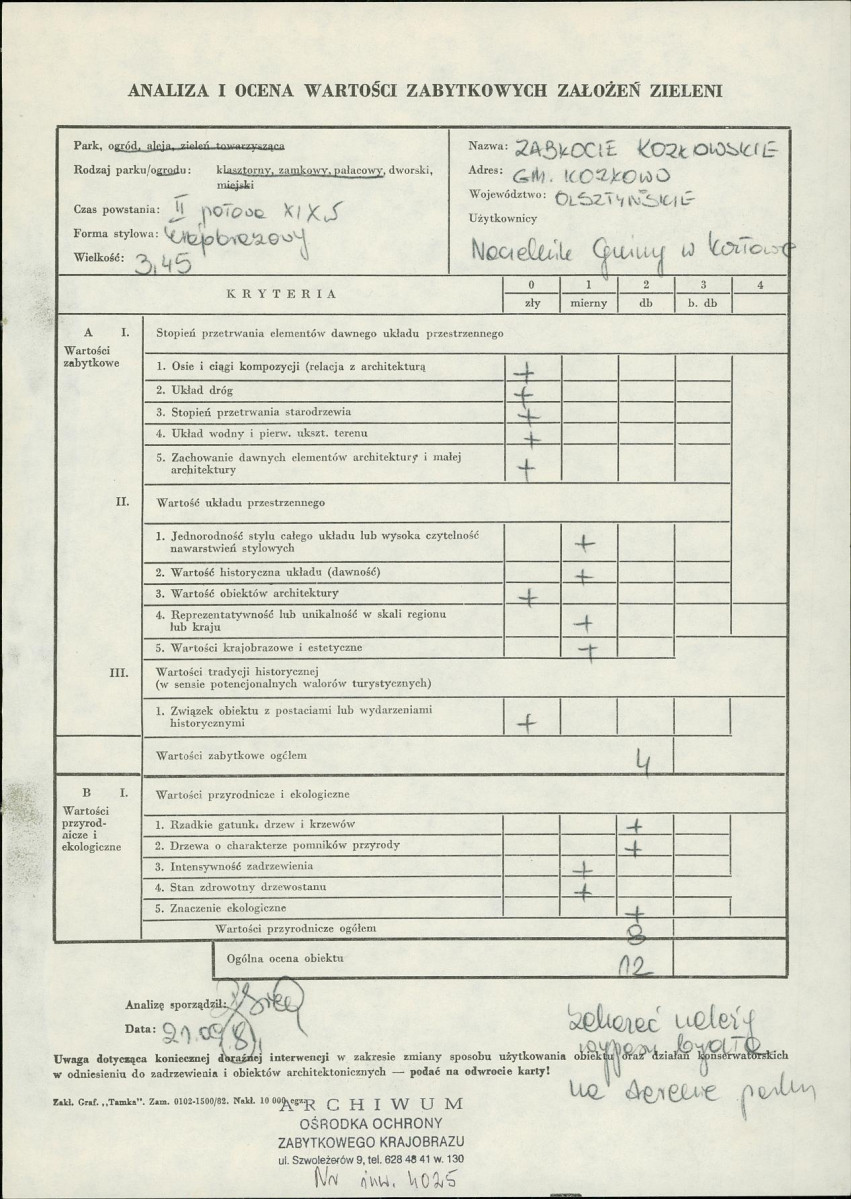 ANALIZA I OCENA WARTOŚCI ZABYTKOWYCH ZAŁOŻEŃ ZIELENI
Park, ogród, aleja, zieleń towarzysząca
Rodzaj parku/ogrodu: klasztorny, zamkowy, pałacowy, dworski,
miejski
Czas powstania: II połowa XIX
Forma stylowa: krajobrazowy
Wielkość: 3,45
Nazwa: ZĄBKOCIE KOZŁOWSKIE
Adres: GM. KOZŁOWO
Województwo: OLSZTYŃSKIE
Użytkownicy
Naczelnik Gminy w
KRYTERIA
0 1 2 3 4
zły mierny db b. db
A I. Stopień przetrwania elementów dawnego układu przestrzennego
Wartości
zabytkowe
1. Osie i ciągi kompozycji (relacja z architekturą +
2. Układ dróg +
3. Stopień przetrwania starodrzewia +
4. Układ wodny i pierw. ukszt. terenu +
5. Zachowanie dawnych elementów architektury i małej
architektury +
II. Wartość układu przestrzennego
1. Jednorodność stylu całego układu lub wysoka czytelność
nawarstwień stylowych +
2. Wartość historyczna układu (dawność) +
3. Wartość obiektów architektury +
4. Reprezentatywność lub unikalność w skali regionu
lub kraju +
5. Wartości krajobrazowe i estetyczne +
III. Wartości tradycji historycznej
(w sensie potencjonalnych walorów turystycznych)
1. Związek obiektu z postaciami lub wydarzeniami
historycznymi +
Wartości zabytkowe ogółem 4
B I. Wartości przyrodnicze i ekologiczne
Wartości
przyrod-
nicze i
ekologiczne
1. Rzadkie gatunki drzew i krzewów +
2. Drzewa o charakterze pomników przyrody +
3. Intensywność zadrzewienia +
4. Stan zdrowotny drzewostanu +
5. Znaczenie ekologiczne +
Wartości przyrodnicze ogółem 8
Ogólna ocena obiektu 12
Analizę sporządził:
Data: 21.09.
zakazać należy
wypasu bydła
na terenie parku
Uwaga dotycząca koniecznej doraźnej interwencji w zakresie zmiany sposobu użytkowania obiektu oraz działań konserwatorskich
w odniesieniu do zadrzewienia i obiektów architektonicznych — podać na odwrocie karty!
Zakł. Graf. „Tamka". Zam. 0102-1500/82. Nakł. 10 000 egz.
ARCHIWUM
OŚRODKA OCHRONY
ZABYTKOWEGO KRAJOBRAZU
ul. Szwoleżerów 9, tel. 628 48 41 w. 130
Nr inw. 4025